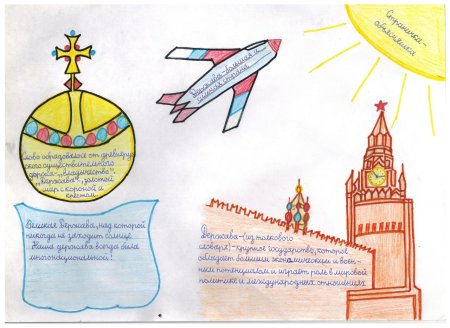 Страничка-
объяснялка
Держава-большая и
сильная страна
Слово образовалось от древнерус-
ского существительного
"владычество".
"Держава", золотой
шар с короной и
крестом
Великая Держава, над которой
никогда не заходит солнце.
Наша держава всегда была
многонациональной!
Держава-(из толкового
словаря)-крупное государство, которое
обладает большим экономическим и воен-
ним потенциалом и играет роль в мировой
политике и международных отношениях